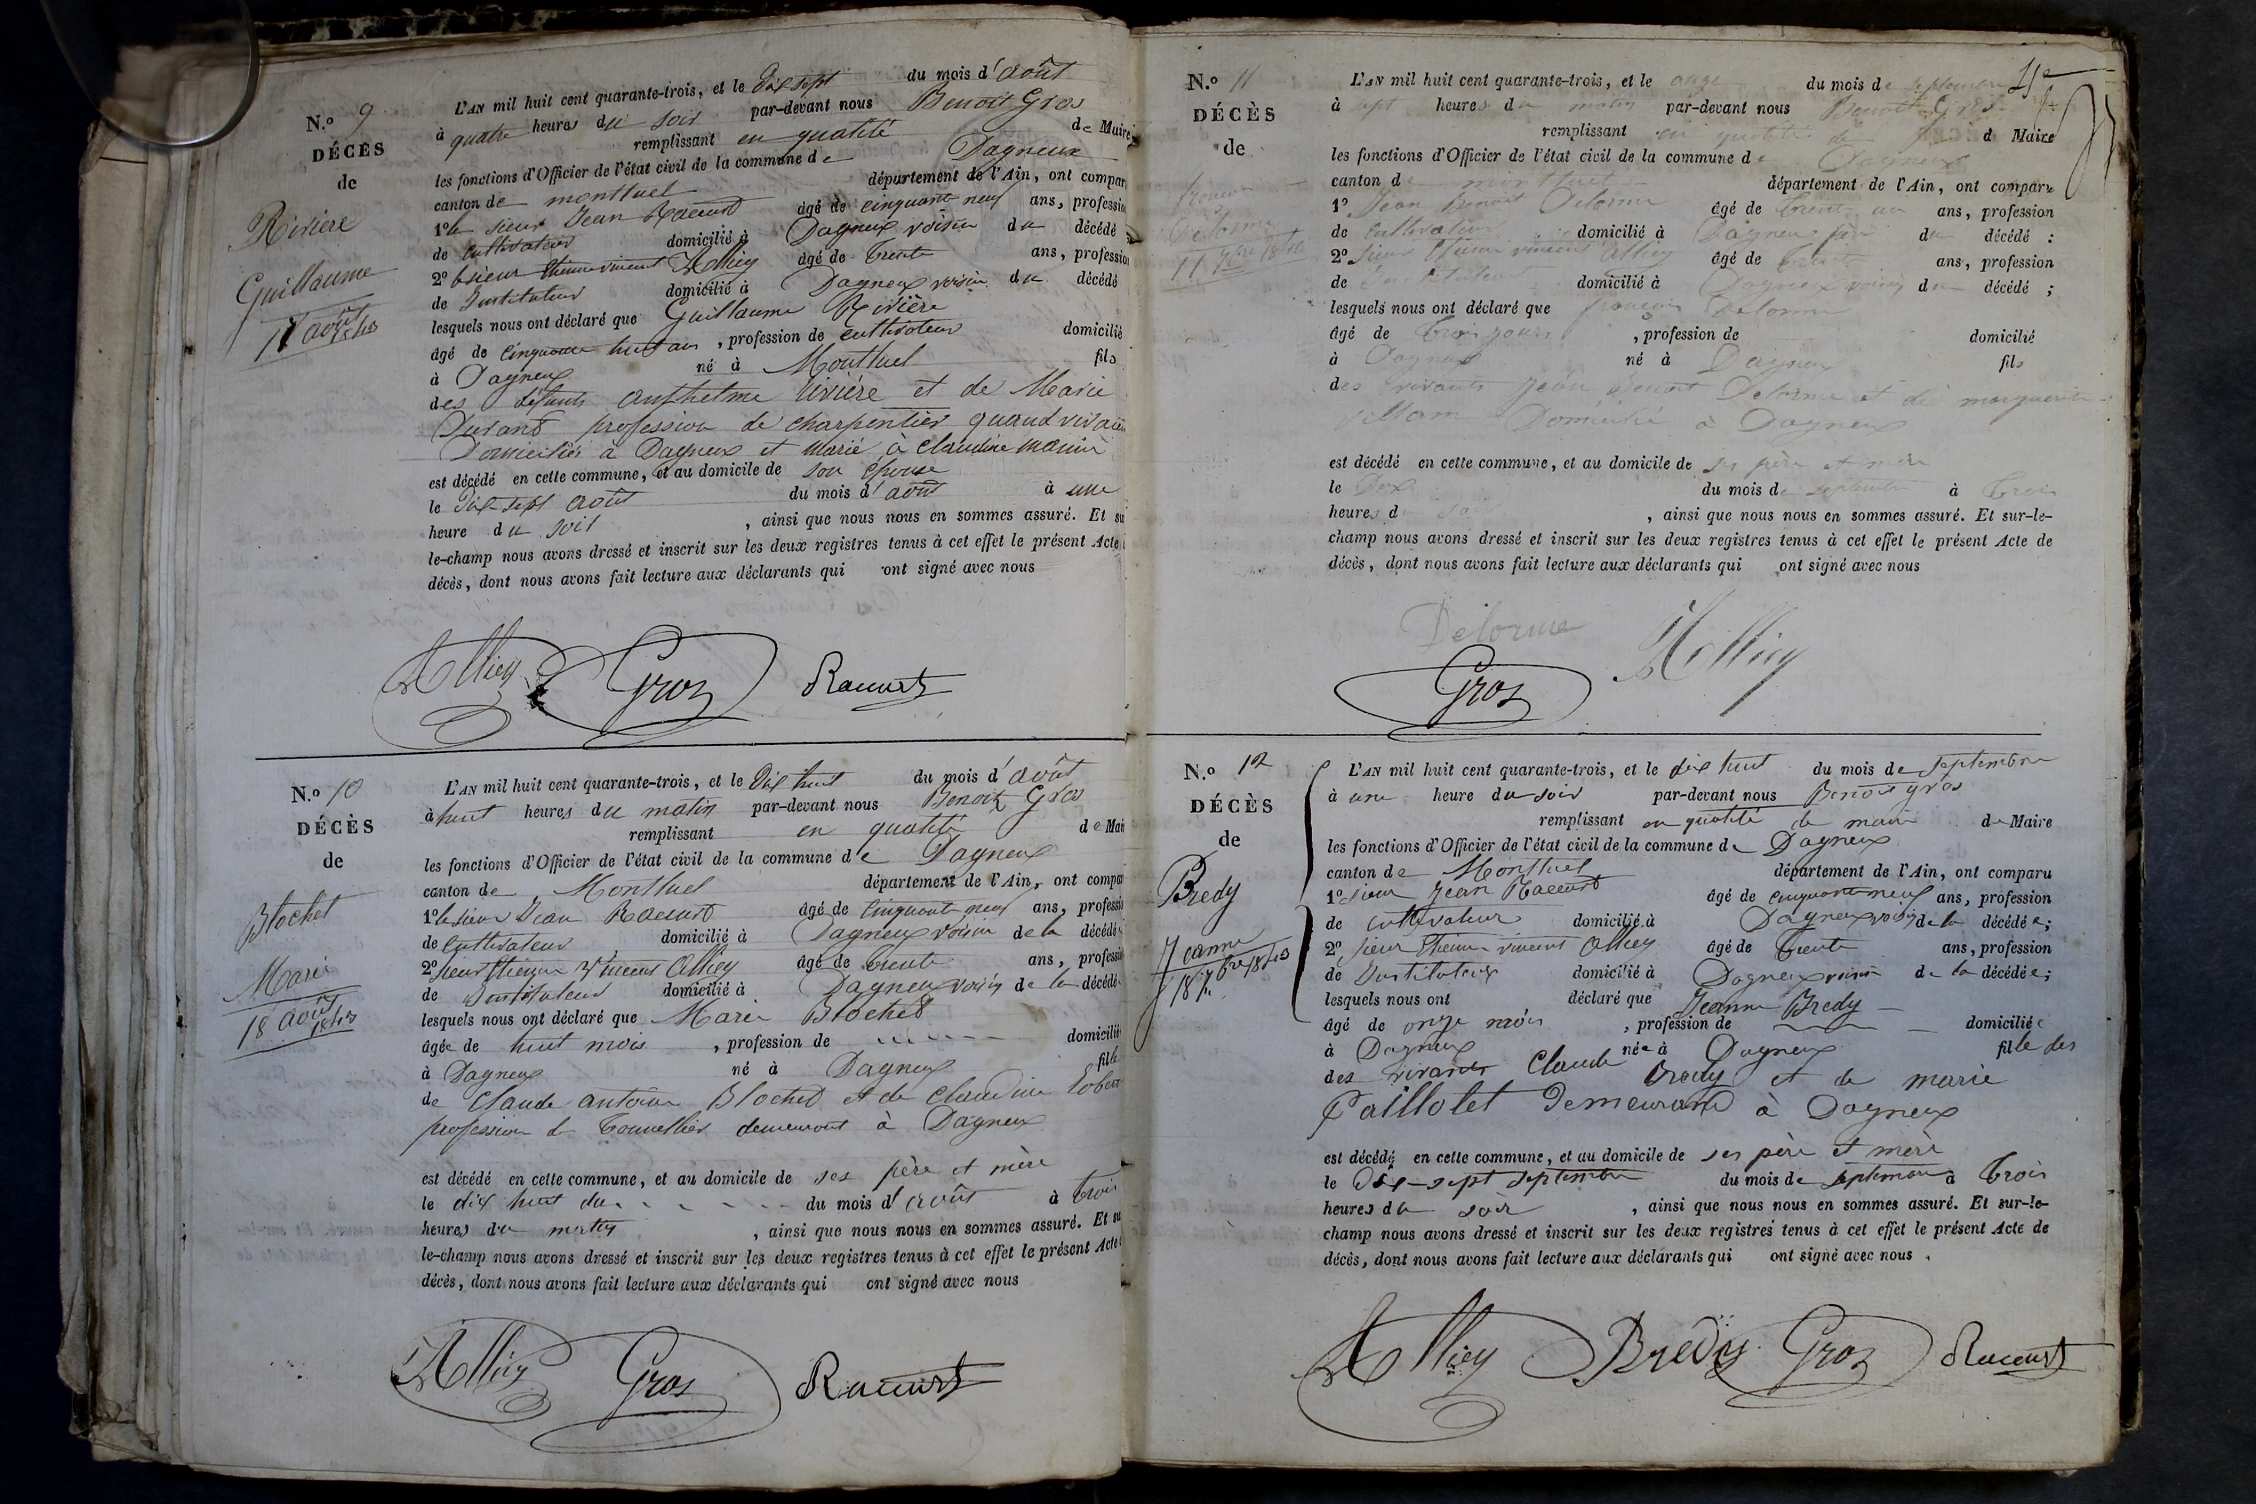 N.o 9
DÉCÈS
de
Rivière
Guillaume
17 août 1843
L'AN mil huit cent quarante-trois, et le Dix sept du mois d'août
à quatre heures du soir par-devant nous Benoit Gros
remplissant en qualité de Maire
les fonctions d'Officier de l'état civil de la commune de Dagneux
canton de montluel département de l'Ain, ont compar
1o le sieur Jean Racurt âgé de cinquante neuf ans, profession
de cultivateur domicilié à Dagneux voisin du décédé
2o le sieur Etienne vincent Alliey âgé de trente ans, profession
de Instituteur domicilié à Dagneux voisin du décédé
lesquels nous ont déclaré que Guillaume Rivière
âgé de cinquante huit ans, profession de cultivateur domicilié
à Dagneux né à Montluel fils
des défunts anthelme rivière et de Marie
Durand profession de charpentier quand vivait
Domiciliés à Dagneux et marié à claudine
est décédé en cette commune, et au domicile de son épouse
le Dix-sept août du mois d'août à une
heure du soir, ainsi que nous nous en sommes assuré. Et su
le-champ nous avons dressé et inscrit sur les deux registres tenus à cet effet le présent Acte
décès, dont nous avons fait lecture aux déclarants qui ont signé avec nous
Alliey Gros Racurt
N.o 10
DÉCÈS
de
Blochet
Marie
18 août 1843
L'AN mil huit cent quarante-trois, et le Dix huit du mois d'août
à huit heures du matin par-devant nous Benoit Gros
remplissant en qualité de Mai
les fonctions d'Officier de l'état civil de la commune de Dagneux
canton de Montluel département de l'Ain, ont compar
1o le sieur Jean Racurt âgé de cinquante neuf ans, professi
de cultivateur domicilié à Dagneux voisin de la décédé
2o sieur Etienne Vincent Alliey âgé de trente ans, professi
de Instituteur domicilié à Dagneux voisin de la décédé
lesquels nous ont déclaré que Marie Blochet
âgée de huit mois, profession de domicilié
à Dagneux né à Dagneux fille
de Claude antoine Blochet et de claudine
profession de tonnellier demeurant à Dagneux
est décédé en cette commune, et au domicile de ses père et mère
le dix huit du du mois d'août à trois
heures du matin, ainsi que nous nous en sommes assuré. Et su
le-champ nous avons dressé et inscrit sur les deux registres tenus à cet effet le présent Acte
décès, dont nous avons fait lecture aux déclarants qui ont signé avec nous
Alliey Gros Racurt
N.o 11
DÉCÈS
de
françois
Delorme
11 7bre 1843
L'AN mil huit cent quarante-trois, et le onze du mois de septembre
à sept heures du matin par-devant nous Benoit Gros
remplissant en qualité de d Maire
les fonctions d'Officier de l'état civil de la commune de Dagneux
canton de montluel département de l'Ain, ont comparu
1o Jean Benoit Delorme âgé de trente un ans, profession
de cultivateur domicilié à Dagneux père du décédé :
2o sieur Etienne vincent Alliey âgé de trente ans, profession
de Instituteur domicilié à Dagneux voisin du décédé ;
lesquels nous ont déclaré que françois Delorme
âgé de trois jours, profession de domicilié
à Dagneux né à Dagneux fils
des vivants Jean Benoit Delorme et de marguerite
Domicilié à Dagneux
est décédé en cette commune, et au domicile de ses père et mère
le Dix du mois de septembre à trois
heures du soir, ainsi que nous nous en sommes assuré. Et sur-le-
champ nous avons dressé et inscrit sur les deux registres tenus à cet effet le présent Acte de
décès, dont nous avons fait lecture aux déclarants qui ont signé avec nous
Delorme Alliey
Gros
N.o 12
DÉCÈS
de
Bredy
Jeanne
18 7bre 1843
L'AN mil huit cent quarante-trois, et le dix huit du mois de septembre
à une heure du soir par-devant nous Benoit gros
remplissant en qualité de maire de Maire
les fonctions d'Officier de l'état civil de la commune de Dagneux
canton de Montluel département de l'Ain, ont comparu
1o sieur Jean Racurt âgé de cinquante neuf ans, profession
de cultivateur domicilié à Dagneux voisin de la décédée;
2o sieur Etienne vincent Alliey âgé de trente ans, profession
de Instituteur domicilié à Dagneux voisin de la décédée;
lesquels nous ont déclaré que Jeanne Bredy
âgé de onze mois, profession de domiciliée
à Dagneux née à Dagneux fille des
des vivants Claude bredy et de marie
Paillolet Demeurant à Dagneux
est décédé en cette commune, et au domicile de ses père et mère
le Dix-sept septembre du mois de septembre à trois
heures du soir, ainsi que nous nous en sommes assuré. Et sur-le-
champ nous avons dressé et inscrit sur les deux registres tenus à cet effet le présent Acte de
décès, dont nous avons fait lecture aux déclarants qui ont signé avec nous.
Alliey Bredy Gros Racurt